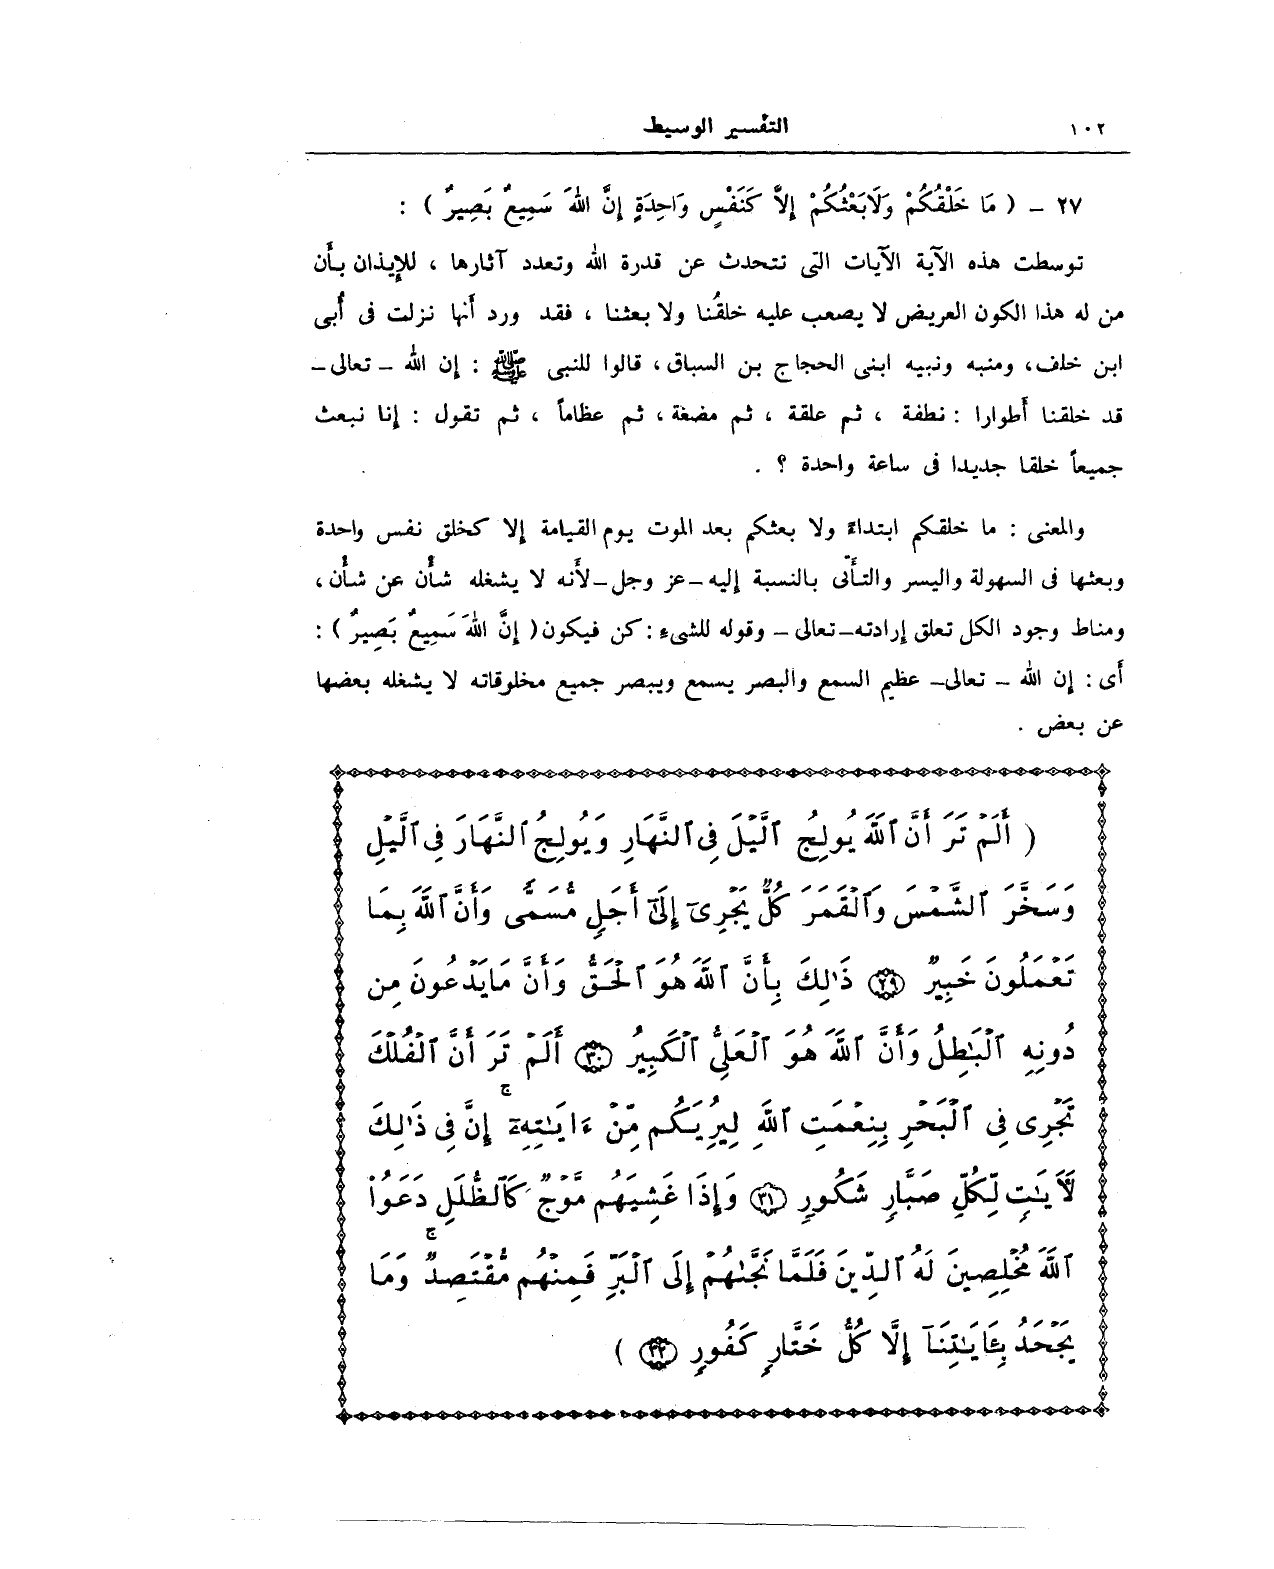 ١٠٢ التفسير الوسيط
٢٧ - ( مَا خَلْقُكُمْ وَلَابَعْثُكُمْ إِلاَّ كَنَفْسٍ وَاحِدَةٍ إِنَّ اللهَ سَمِيعٌ بَصِيرٌ ) :
توسطت هذه الآية الآيات التى تتحدث عن قدرة الله وتعدد آثارها ، للإيذان بأن
من له هذا الكون العريض لا يصعب عليه خلقُنا ولا بعثنا ، فقد ورد أنها نزلت فى أُبى
ابن خلف، ومنبه ونبيه ابنى الحجاج بن السباق، قالوا للنبى ﷺ : إن الله - تعالى-
قد خلقنا أطوارا : نطفة ، ثم علقة ، ثم مضغة، ثم عظاماً ، ثم تقول : إنا نبعث
جميعاً خلقا جديدا فى ساعة واحدة ؟ .
والمعنى : ما خلقكم ابتداءً ولا بعثكم بعد الموت يوم القيامة إلا كخلق نفس واحدة
وبعثها فى السهولة واليسر والتأتّى بالنسبة إليه-عز وجل-لأنه لا يشغله شأن عن شأن،
ومناط وجود الكل تعلق إرادته-تعالى- وقوله للشىء: كن فيكون( إِنَّ اللهَ سَمِيعٌ بَصِيرٌ ) :
أى : إن الله - تعالى- عظيم السمع والبصر يسمع ويبصر جميع مخلوقاته لا يشغله بعضها
عن بعض .
( أَلَمْ تَرَ أَنَّ ٱللَّهَ يُولِجُ ٱلَّيْلَ فِى ٱلنَّهَارِ وَيُولِجُ ٱلنَّهَارَ فِى ٱلَّيْلِ
وَسَخَّرَ ٱلشَّمْسَ وَٱلْقَمَرَ كُلٌّ يَجْرِىٓ إِلَىٰٓ أَجَلٍ مُّسَمًّى وَأَنَّ ٱللَّهَ بِمَا
تَعْمَلُونَ خَبِيرٌ ٢٩ ذَٰلِكَ بِأَنَّ ٱللَّهَ هُوَ ٱلْحَقُّ وَأَنَّ مَا يَدْعُونَ مِن
دُونِهِ ٱلْبَٰطِلُ وَأَنَّ ٱللَّهَ هُوَ ٱلْعَلِىُّ ٱلْكَبِيرُ ٣٠ أَلَمْ تَرَ أَنَّ ٱلْفُلْكَ
تَجْرِى فِى ٱلْبَحْرِ بِنِعْمَتِ ٱللَّهِ لِيُرِيَكُم مِّنْ ءَايَٰتِهِۦٓ ۚ إِنَّ فِى ذَٰلِكَ
لَأٓيَٰتٍ لِّكُلِّ صَبَّارٍ شَكُورٍ ٣١ وَإِذَا غَشِيَهُم مَّوْجٌ كَٱلظُّلَلِ دَعَوُا۟
ٱللَّهَ مُخْلِصِينَ لَهُ ٱلدِّينَ فَلَمَّا نَجَّىٰهُمْ إِلَى ٱلْبَرِّ فَمِنْهُم مُّقْتَصِدٌ ۚ وَمَا
يَجْحَدُ بِـَٔايَٰتِنَآ إِلَّا كُلُّ خَتَّارٍ كَفُورٍ ٣٢ )